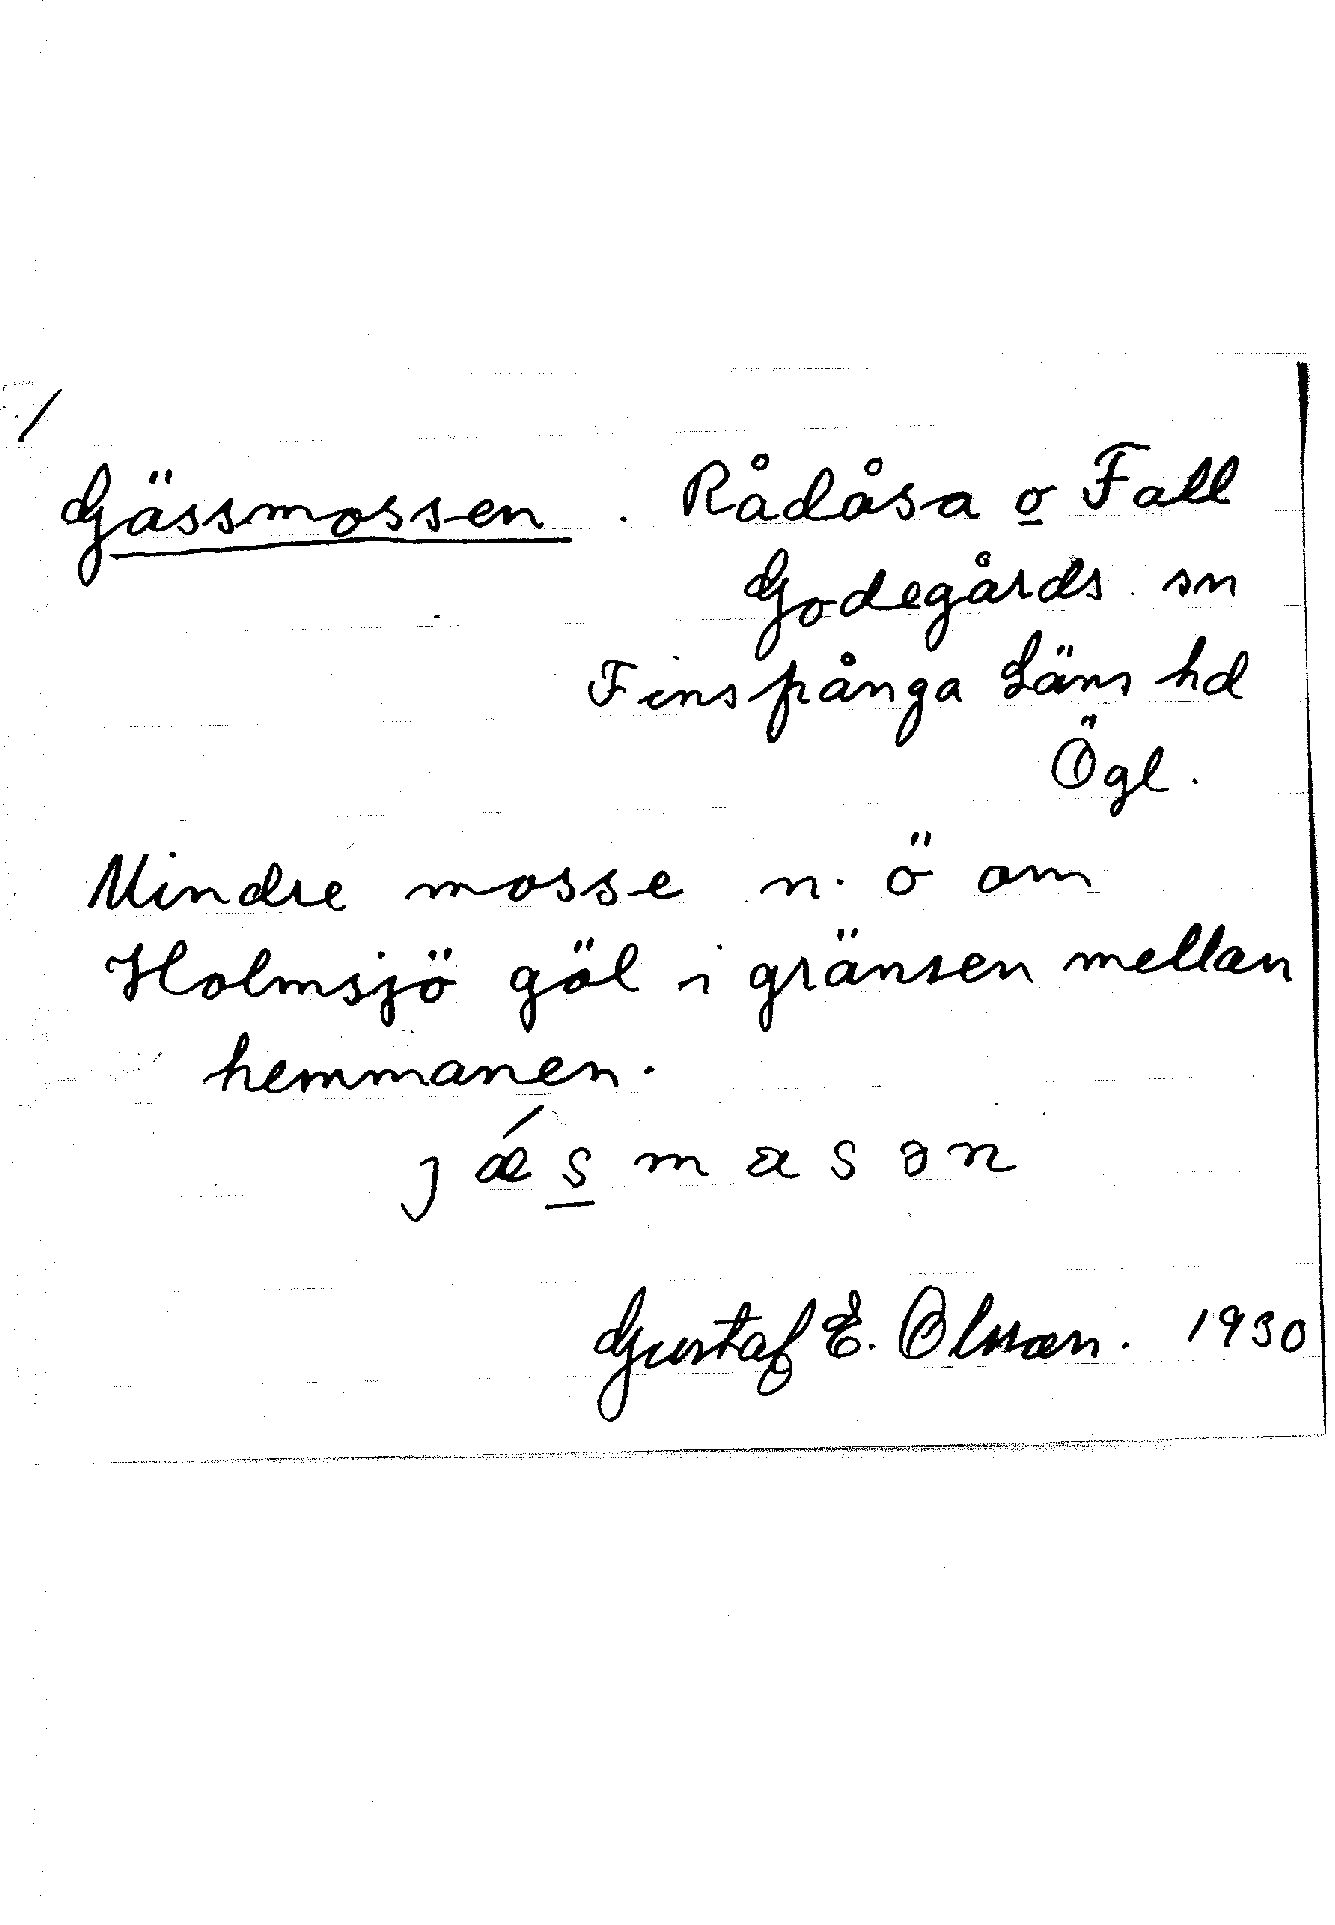 /
Gässmossen. Rådåsa o Fall
Godegårds sn
Finspånga Läns hd
Ögl.
Mindre mosse n. ö om
Holmsjö göl i gränsen mellan
hemmanen.
jǽs̲masən
Gustaf E. Olsson. 1930